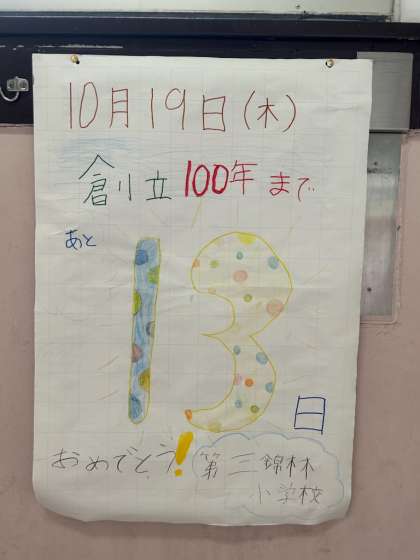 10月19日(木)
創立100年まで
あと
13日
おめでとう!
第三錦林
小学校